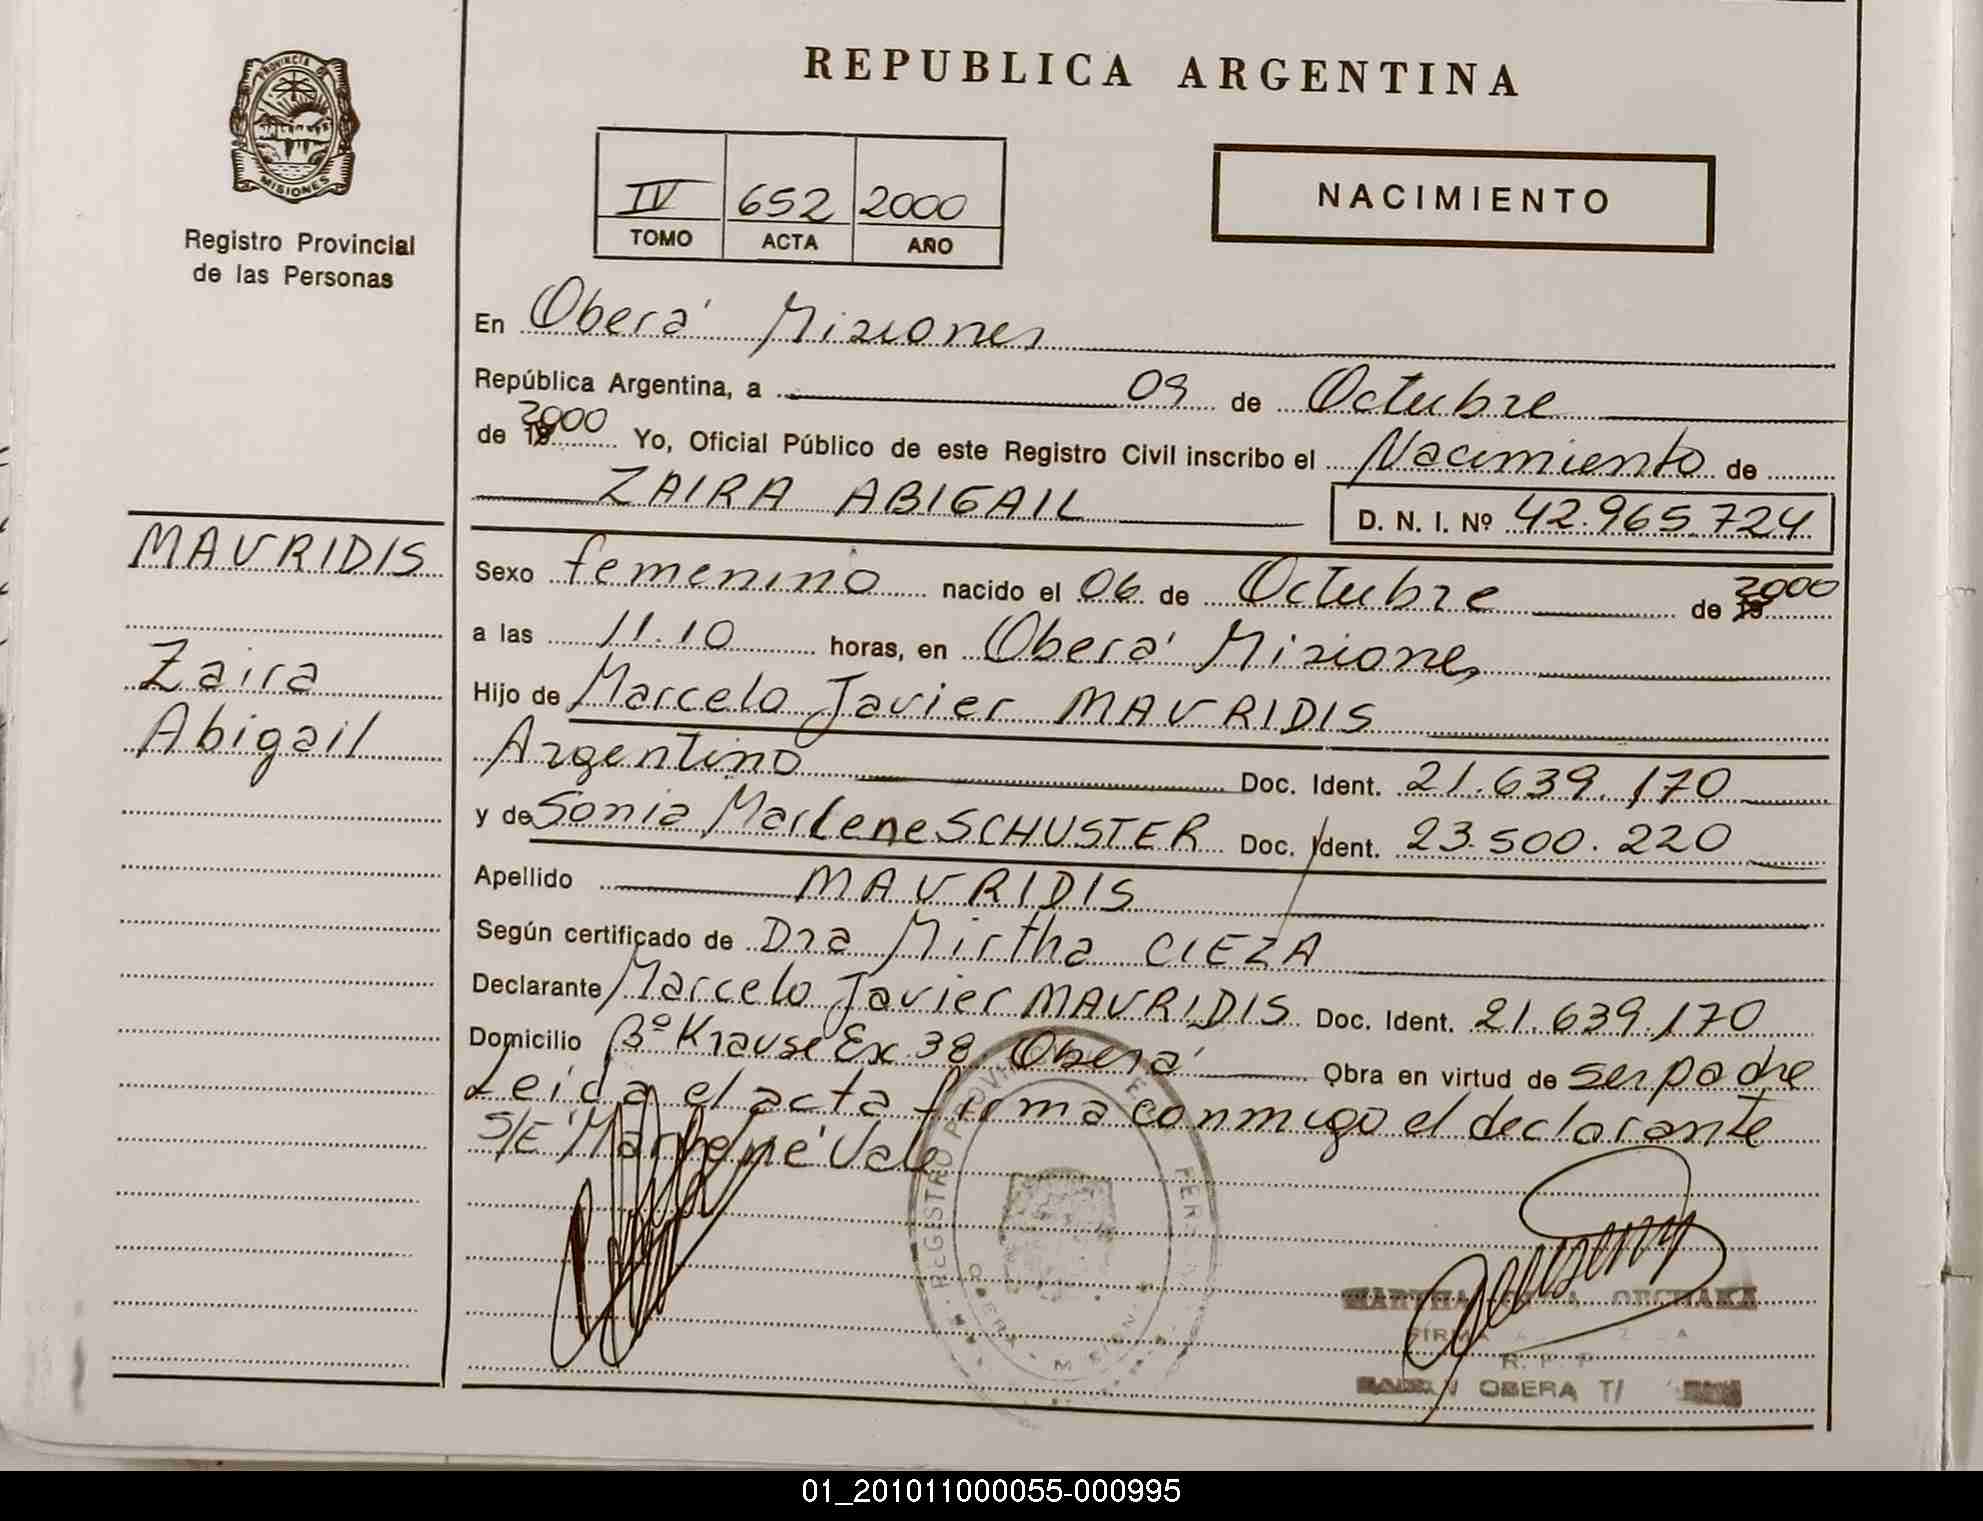 REPUBLICA ARGENTINA
PROVINCIA DE
MISIONES
Registro Provincial
de las Personas
IV 652 2000
TOMO ACTA AÑO
NACIMIENTO
En Oberá Misiones
República Argentina, a 09 de Octubre
de 19 2000 Yo, Oficial Público de este Registro Civil inscribo el Nacimiento de
ZAIRA ABIGAIL D. N. I. Nº 42.965.724
MAVRIDIS
Zaira
Abigail
Sexo femenino nacido el 06 de Octubre de 19 2000
a las 11.10 horas, en Oberá Misiones
Hijo de Marcelo Javier MAVRIDIS
Argentino Doc. Ident. 21.639.170
y de Sonia Marlene SCHUSTER Doc. Ident. 23.500.220
Apellido MAVRIDIS
Según certificado de Dra Mirtha CIEZA
Declarante Marcelo Javier MAVRIDIS Doc. Ident. 21.639.170
Domicilio Bº Krause Ex 38. Oberá Obra en virtud de ser padre
Leida el acta firma conmigo el declarante
S/E "Marlene" Vale
REGISTRO
MARTHA
FIRMA
R. P. P
OBERA T/
01_201011000055-000995